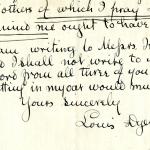 others of which I pray
mind me ought to have
am writing to Messrs.
d I shall not write to
ord from all three of you
tting in my oar would
Yours sincerely
Louis Dyer